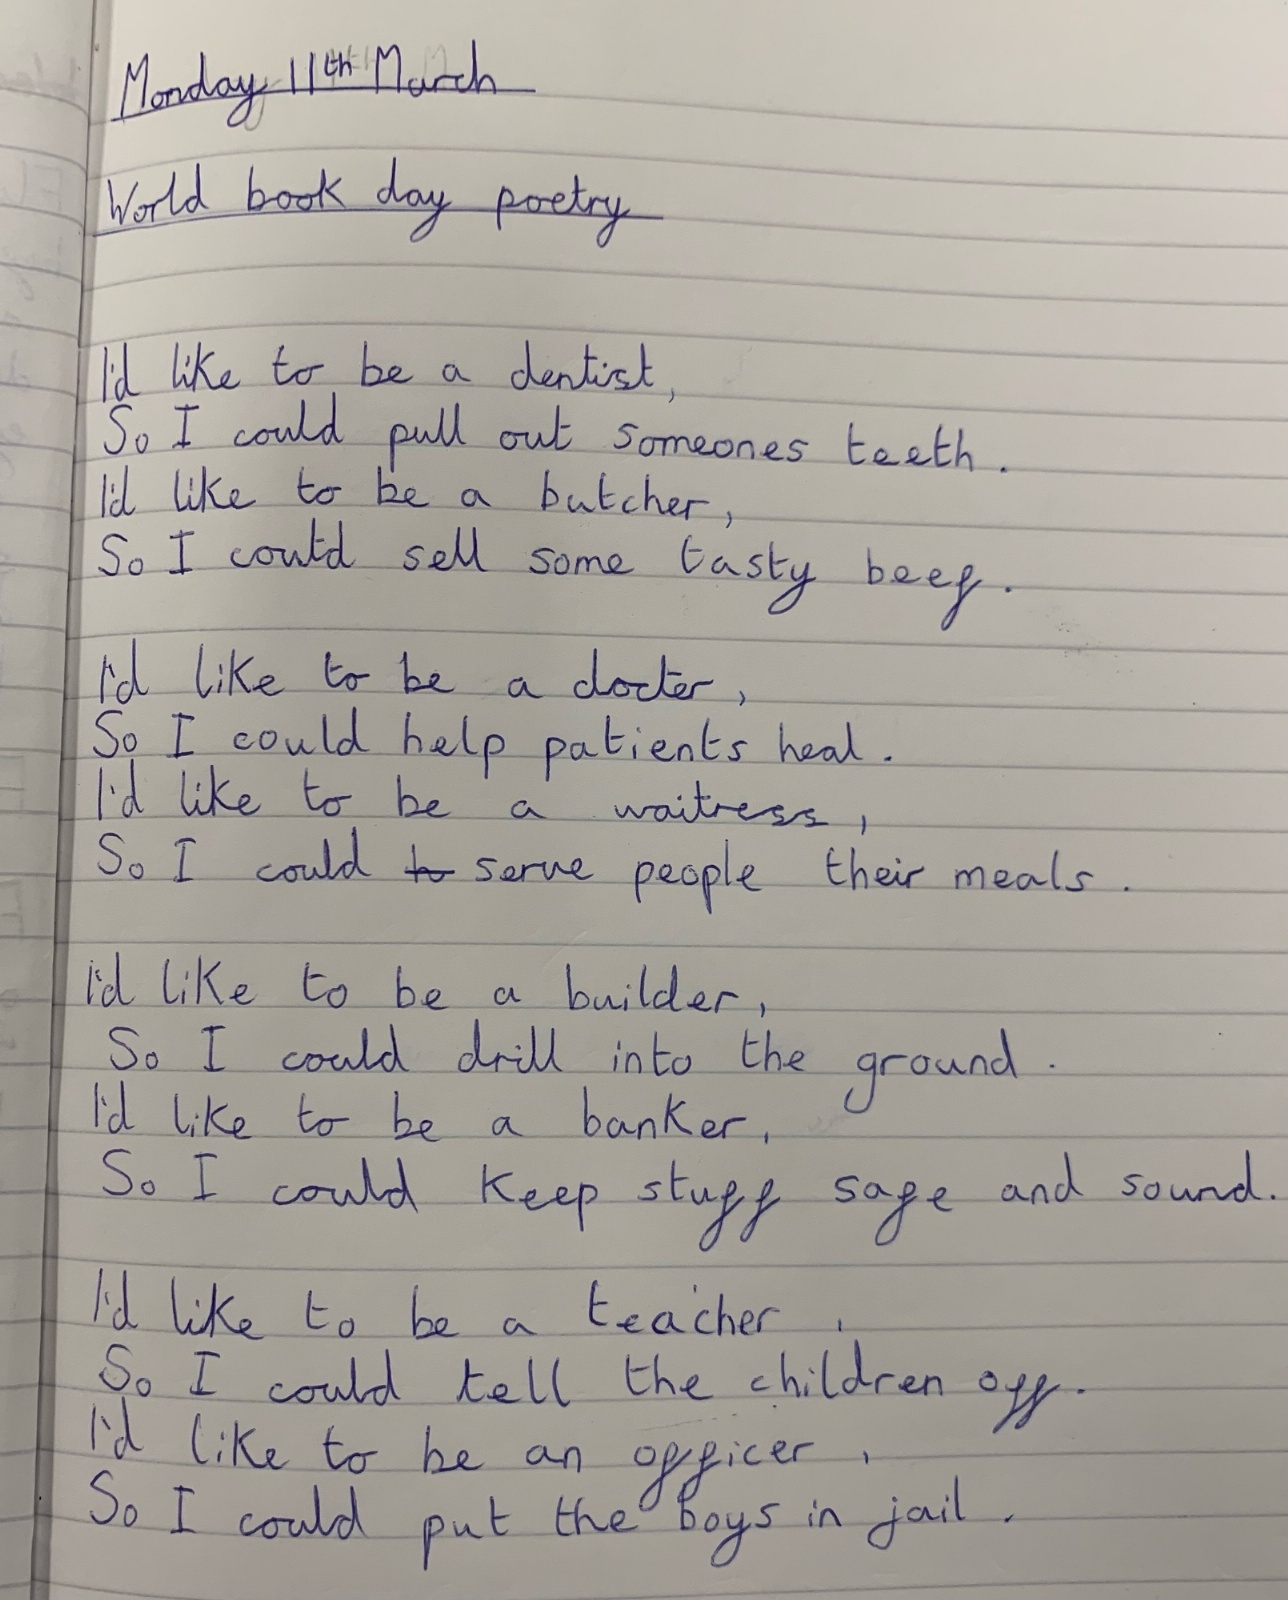 Monday 11th March
World book day poetry
I'd like to be a dentist,
So I could pull out someones teeth.
I'd like to be a butcher,
So I could sell some tasty beef.
I'd like to be a docter,
So I could help patients heal.
I'd like to be a waitress,
So I could to serve people their meals.
I'd like to be a builder,
So I could drill into the ground.
I'd like to be a banker,
So I could keep stuff safe and sound.
I'd like to be a teacher,
So I could tell the children off.
I'd like to be an officer,
So I could put the boys in jail.